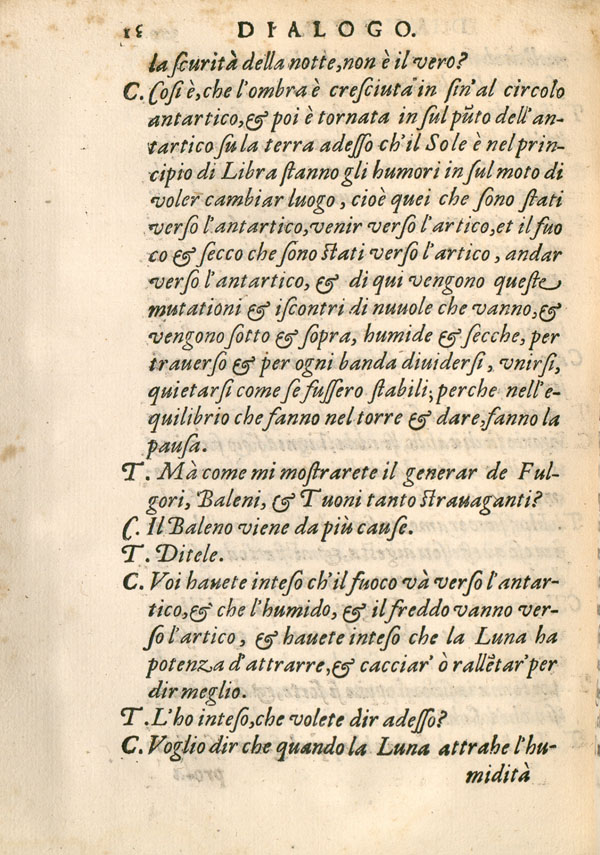 DIALOGO.
la scurità della notte, non è il vero?
C. Cosi è, che l'ombra è cresciuta in sin' al circolo
antartico, & poi è tornata in sul pũto dell'an-
tartico su la terra adesso ch'il Sole è nel prin-
cipio di Libra stanno gli humori in sul moto di
voler cambiar luogo, cioè quei che sono stati
verso l'antartico, venir verso l'artico, et il fuo
co & secco che sono stati verso l'artico, andar
verso l'antartico, & di qui vengono queste
mutationi & iscontri di nuuole che vanno, &
vengono sotto & sopra, humide & secche, per
trauerso & per ogni banda diuidersi, vnirsi,
quietarsi come se fussero stabili; perche nell'e-
quilibrio che fanno nel torre & dare, fanno la
pausa.
T. Mà come mi mostrarete il generar de Ful-
gori, Baleni, & Tuoni tanto strauaganti?
C. Il Baleno viene da più cause.
T. Ditele.
C. Voi hauete inteso ch'il fuoco và verso l'antar-
tico, & che l'humido, & il freddo vanno ver-
so l'artico, & hauete inteso che la Luna ha
potenza d'attrarre, & cacciar' ò rallẽtar' per
dir meglio.
T. L'ho inteso, che volete dir adesso?
C. Voglio dir che quando la Luna attrahe l'hu-
midità